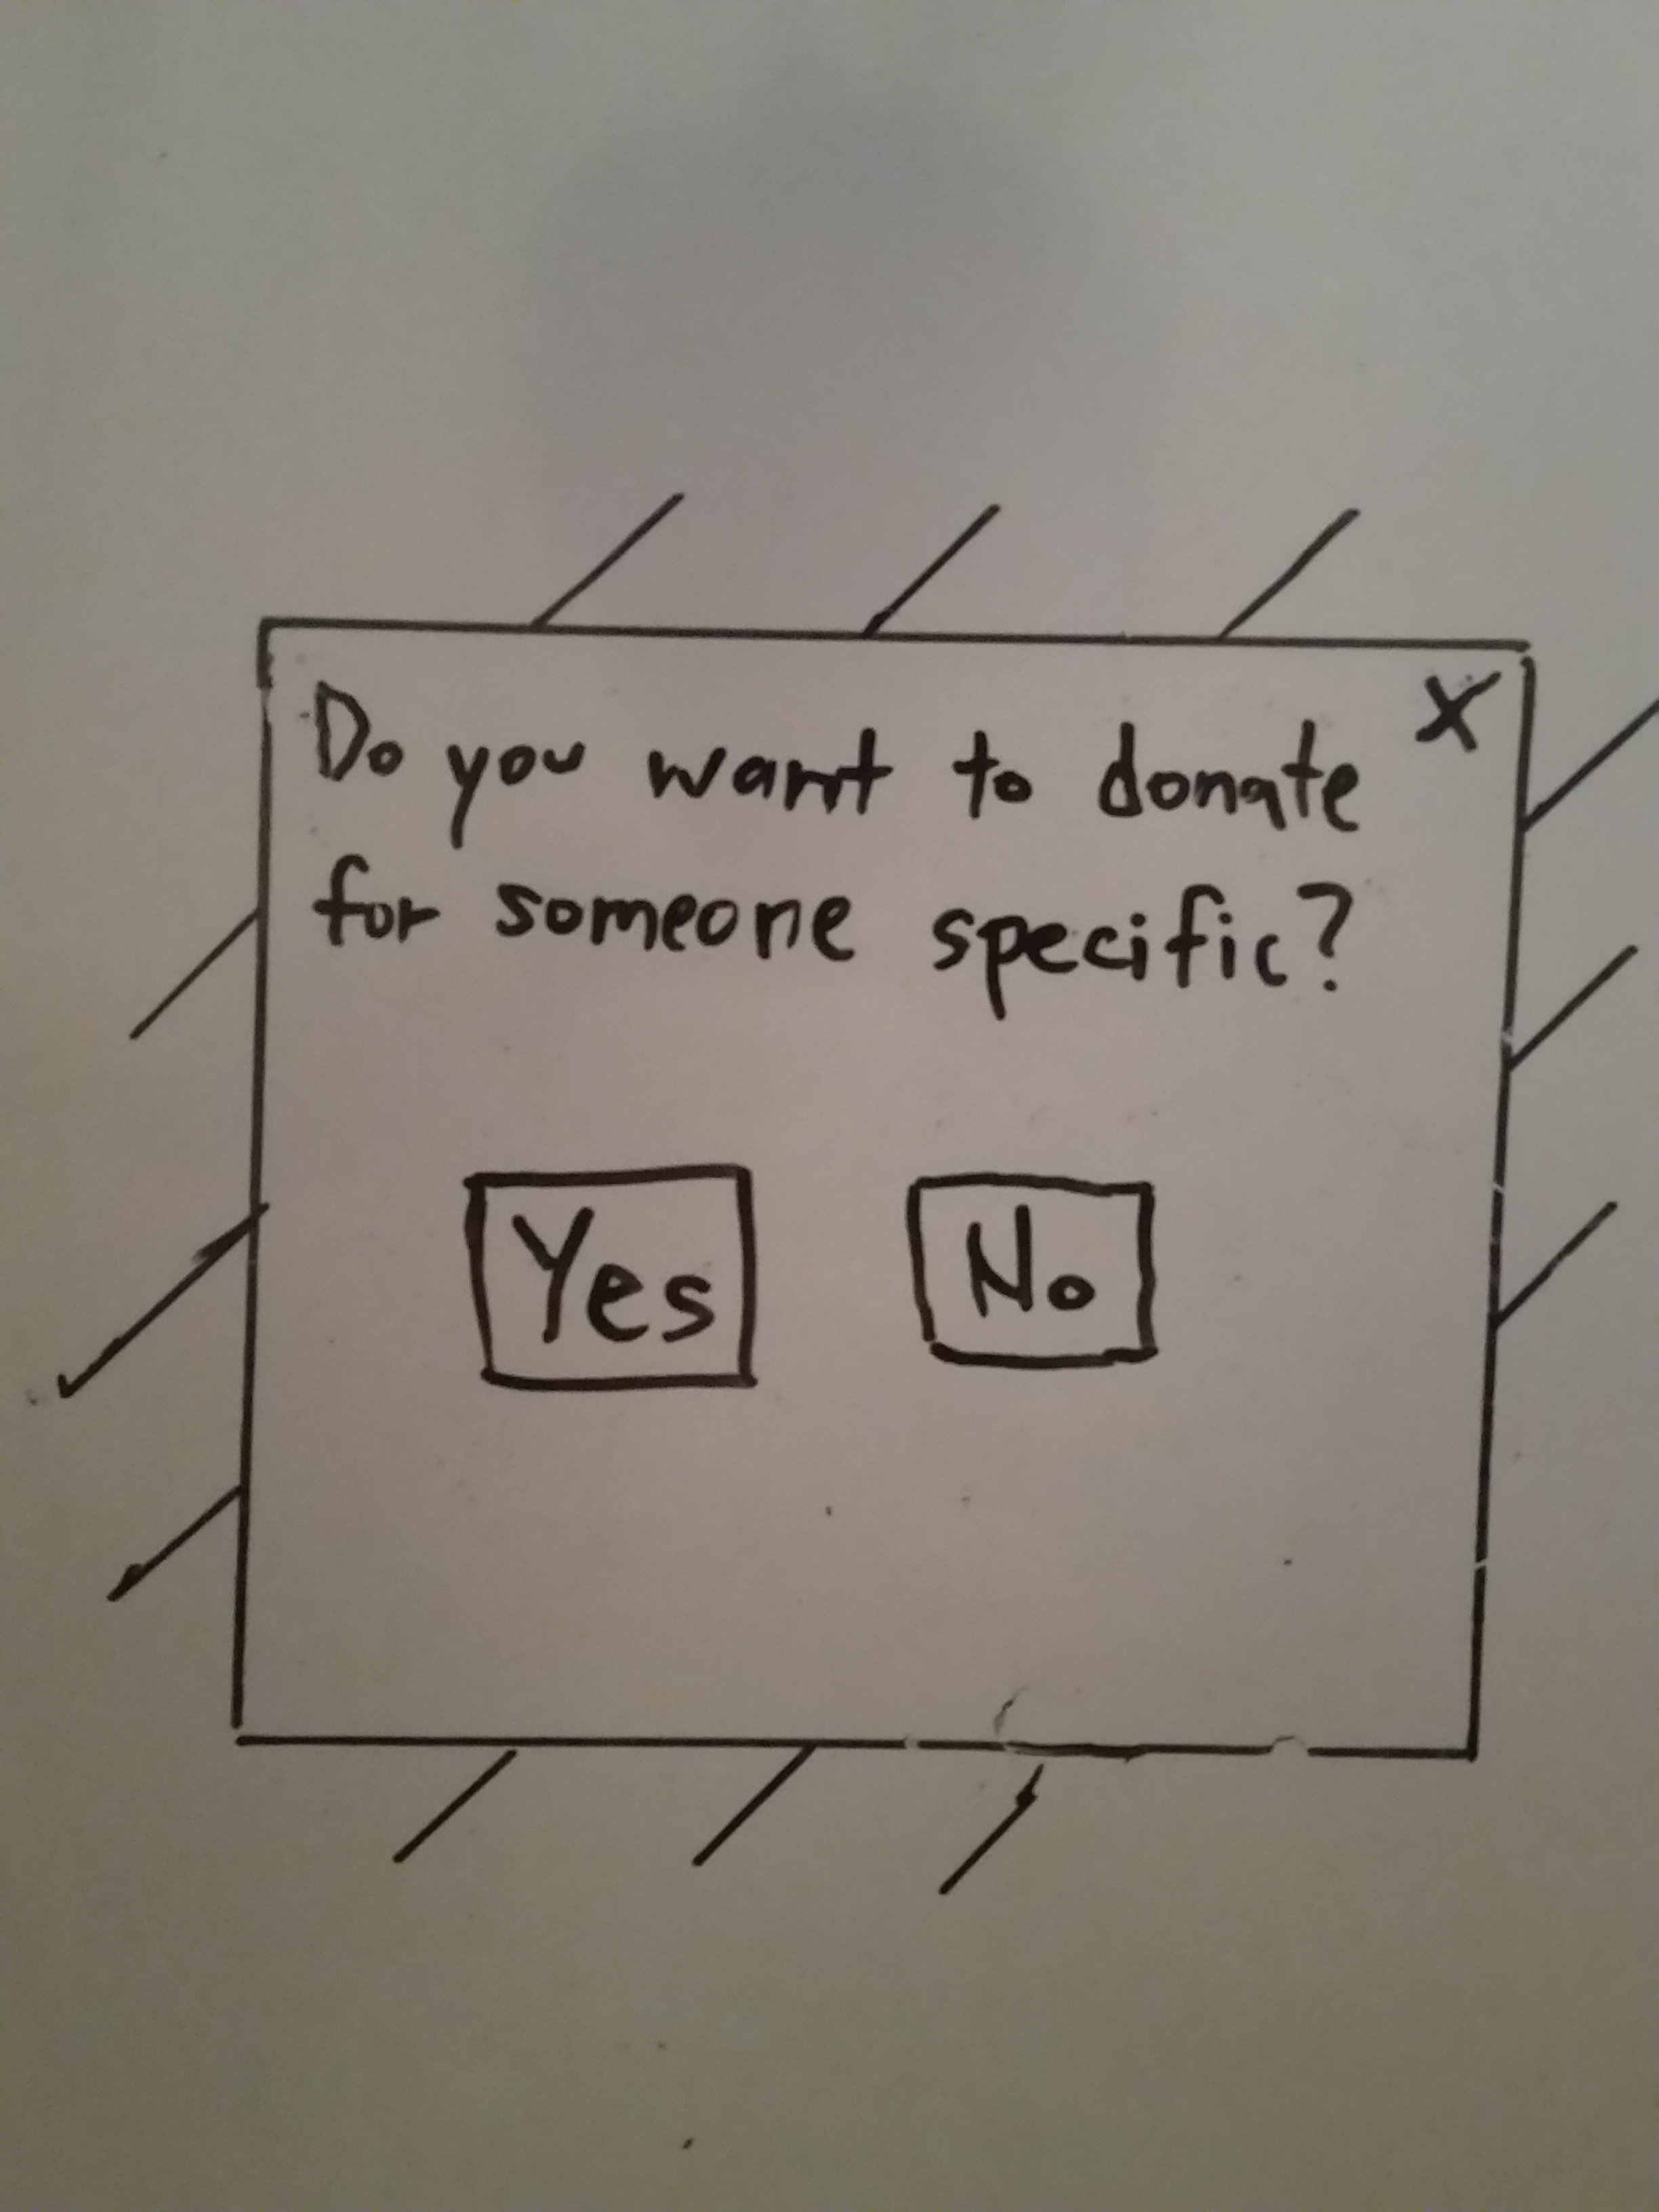 X
Do you want to donate
for someone specific?
Yes No